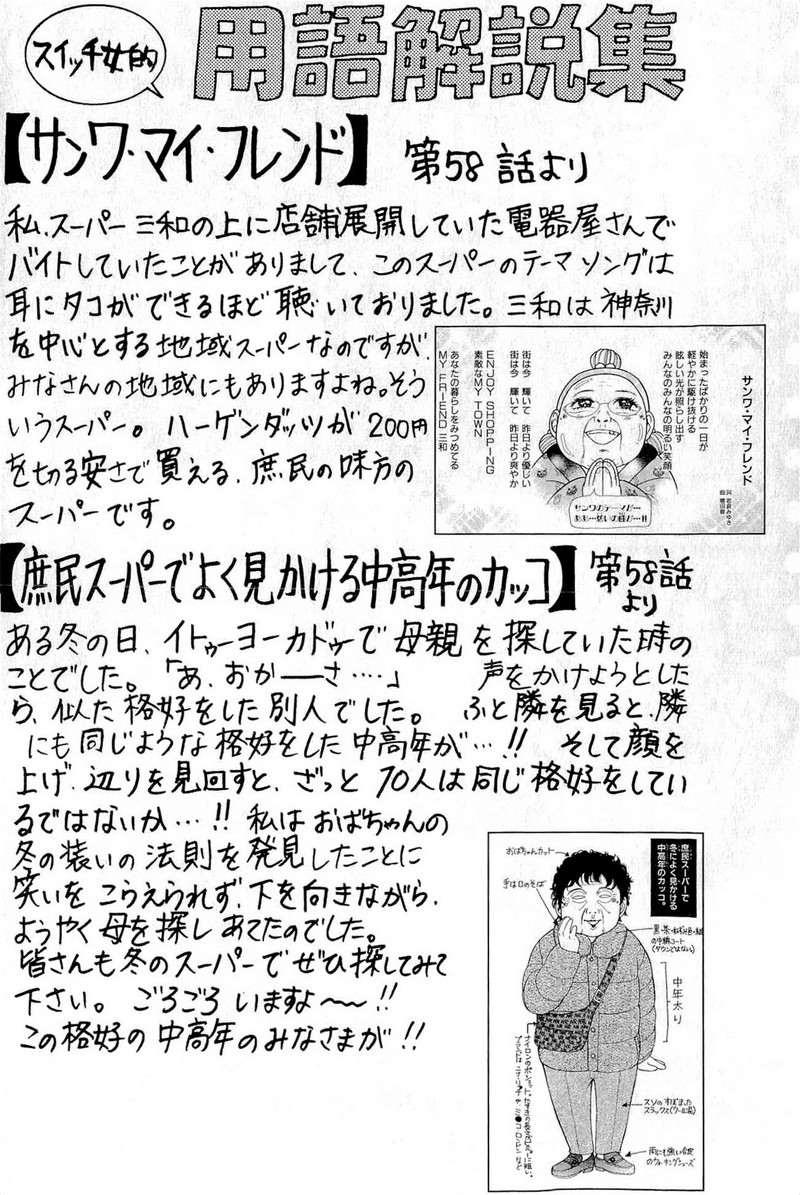 スイッチ女的
用語解説集
【サンワ・マイ・フレンド】 第58話より
私、スーパー三和の上に店舗展開していた電器屋さんで
バイトしていたことがありまして、このスーパーのテーマソングは
耳にタコができるほど聴いておりました。三和は神奈川
を中心とする地域スーパーなのですが、
みなさんの地域にもありますよね。そう
いうスーパー。ハーゲンダッツが200円
を切る安さで買える、庶民の味方の
スーパーです。
サンワ・マイ・フレンド
始まったばかりの一日が
軽やかに駆け抜ける
眩しい光が照らし出す
みんなのみんなの明るい笑顔
街は今 輝いて 昨日より優しい
街は今 輝いて 昨日より爽やか
ENJOY SHOPPING
素敵なMY TOWN
あなたの暮らしをみつめてる
MY FRIEND 三和
サンワのテーマが…
【庶民スーパーでよく見かける中高年のカッコ】 第58話
より
ある冬の日、イトゥーヨーカドゥで母親を探していた時の
ことでした。「あ、おかーさ‥‥」 声をかけようとした
ら、似た格好をした別人でした。 ふと隣を見ると、隣
にも同じような格好をした中高年が…!! そして顔を
上げ、辺りを見回すと、ざっと70人は同じ格好をしてい
るではないか…!! 私はおばちゃんの
冬の装いの法則を発見したことに
笑いをこらえられず、下を向きながら、
ようやく母を探しあてたのでした。
皆さんも冬のスーパーでぜひ探してみて
下さい。 ごろごろいますよ〜〜!!
この格好の中高年のみなさまが!!
庶民スーパーで
冬によく見かける
中高年のカッコ。
おばちゃんカット
手は口のそば
の中綿コート
(ダウンではない)
中年太り
スソのすぼまった
スラックス
雨にも強い
のウォーキングシューズ